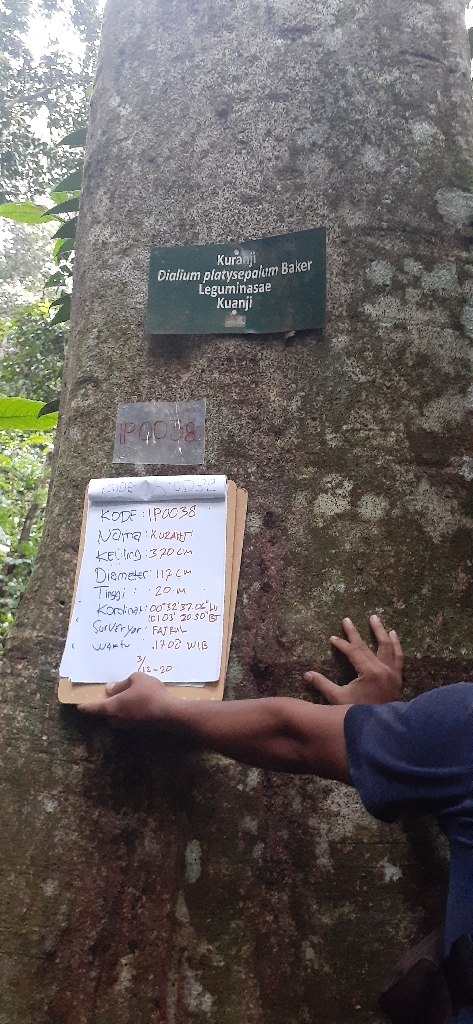 Kuranji
Dialium platysepalum Baker
Leguminasae
Kuanji
IP0038
KODE : IP0038
Nama : KURANJI
Keliling : 370 CM
Diameter : 117 CM
Tinggi : 20 M
Kordinat : 00°32'37.06" LU
101°03' 20.30" BT
Surveryor : FAJRUL
Waktu : 17.08 WIB
3/12-20